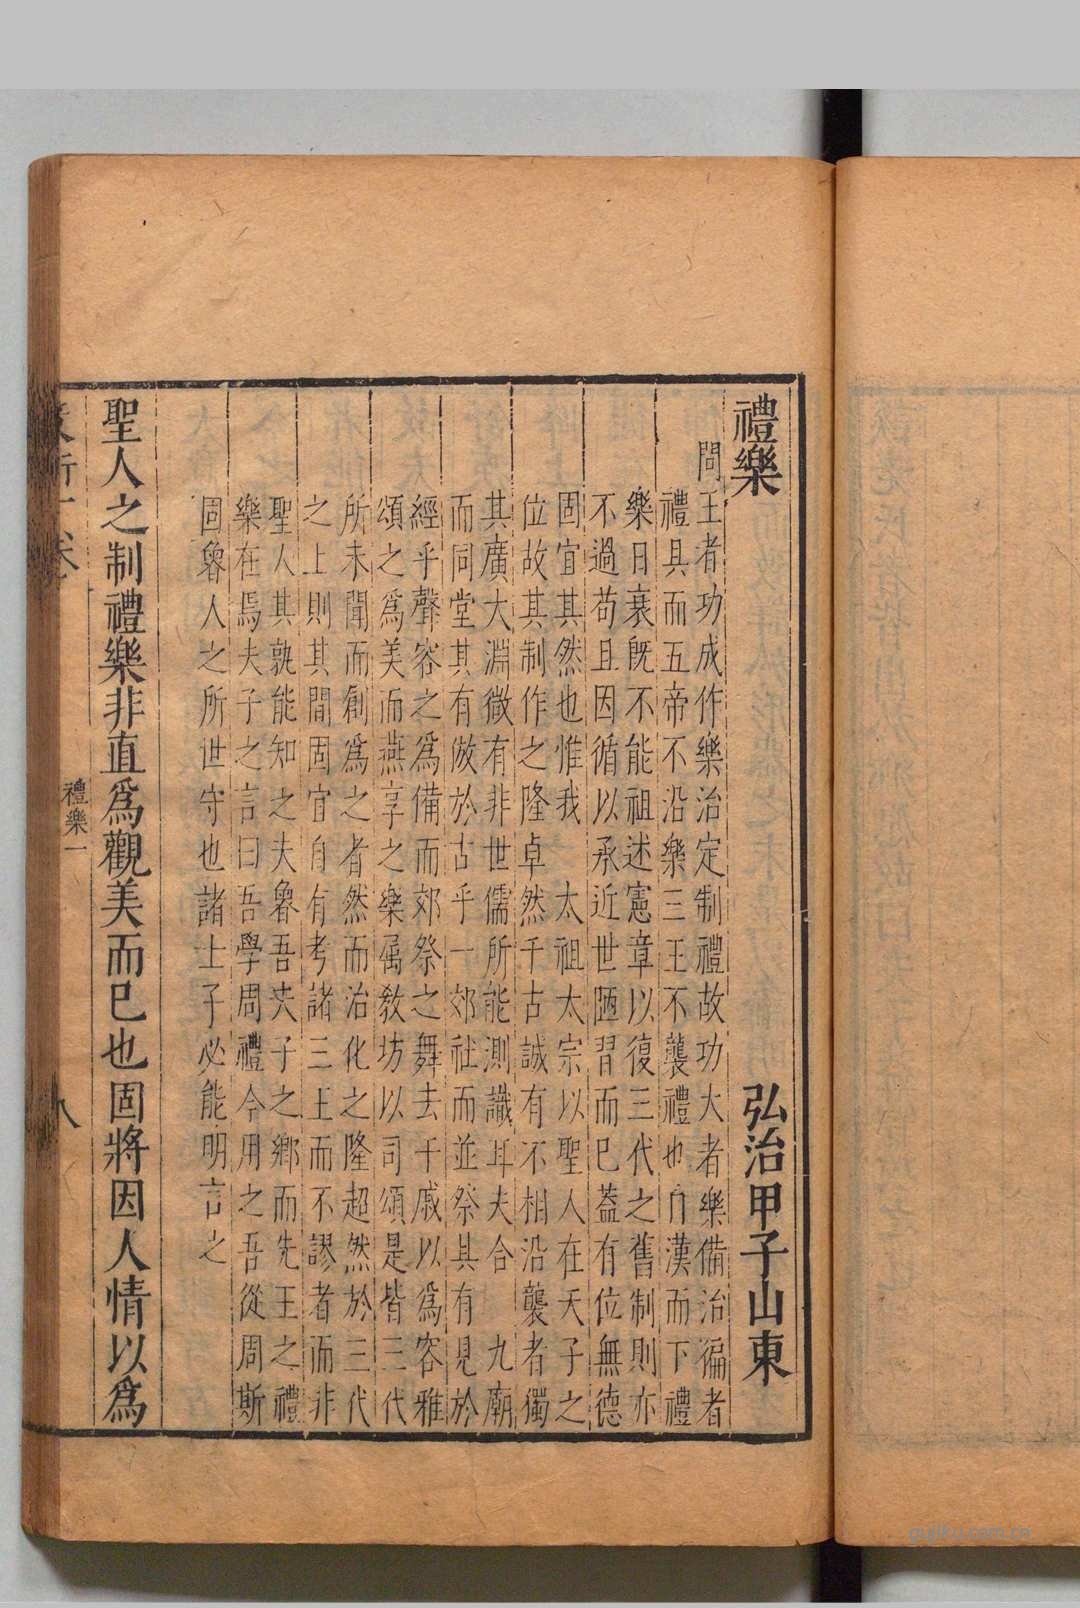 禮樂　弘治甲子山東
問王者功成作樂治定制禮故功大者樂備治徧者
禮具而五帝不沿樂三王不襲禮也自漢而下禮
樂日衰既不能祖述憲章以復三代之舊制則亦
不過苟且因循以承近世陋習而已蓋有位無德
固宜其然也惟我　太祖太宗以聖人在天子之
位故其制作之隆卓然千古誠有不相沿襲者獨
其廣大淵微有非世儒所能測識耳夫合　九廟
而同堂其有倣於古乎一郊社而並祭其有見於
經乎聲容之爲備而郊祭之舞去干戚以爲容雅
頌之爲美而燕享之樂属教坊以司頌是皆三代
所未聞而創爲之者然而治化之隆超然於三代
之上則其間固宜自有考諸三王而不謬者而非
聖人其孰能知之夫魯吾夫子之鄉而先王之禮
樂在焉夫子之言曰吾學周禮今用之吾從周斯
固魯人之所世守也諸士子必能明言之
聖人之制禮樂非直爲觀美而已也固將因人情以爲
禮樂一
八
gujiku.com.cn